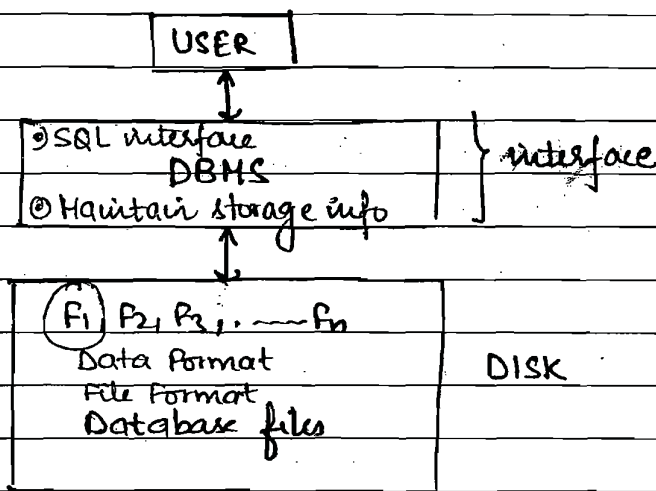 USER
⊙ SQL interface
DBMS
⊙ Maintain storage info
} interface
F1, F2, F3, . ----- Fn
Data Format
File Format
Database files
DISK